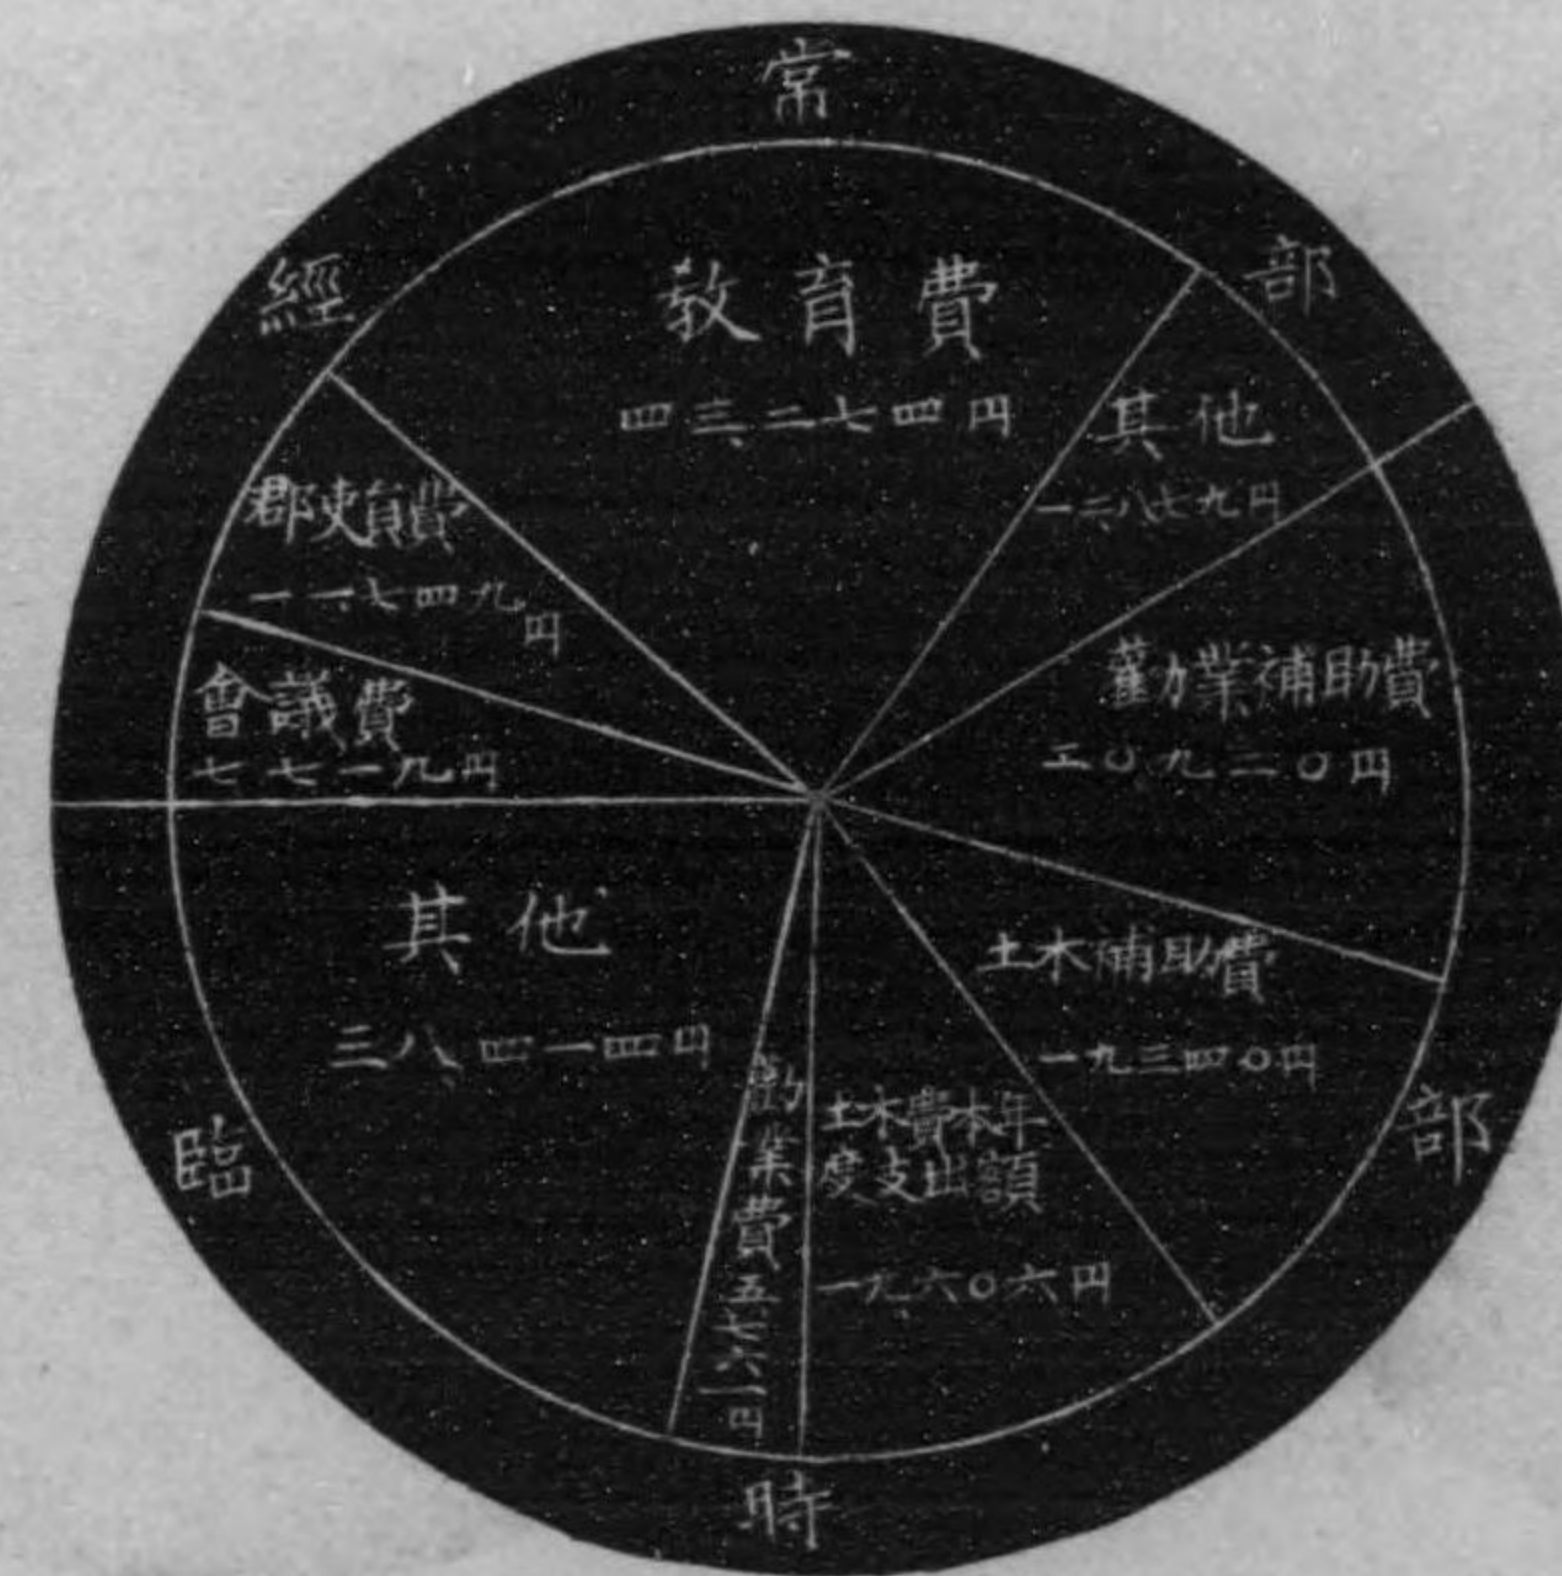 經常部
教育費
四三、二七四円
其他
一二、八七九円
郡吏員費
一一、七四九円
會議費
七七一九円
勸業補助費
二〇九二〇円
土木補助費
一九三四〇円
土木費本年
度支出額
一九、六〇六円
勸業費五七六一円
其他
三八、四一四円
臨時部